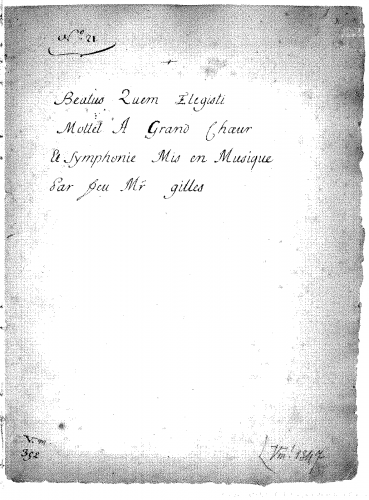 N.º 21
Beatus Quem Elegisti
Mottet A Grand Chœur
Et Symphonie Mis en Musique
Par feu Mr gilles
Vm
392
Vm¹ 1347